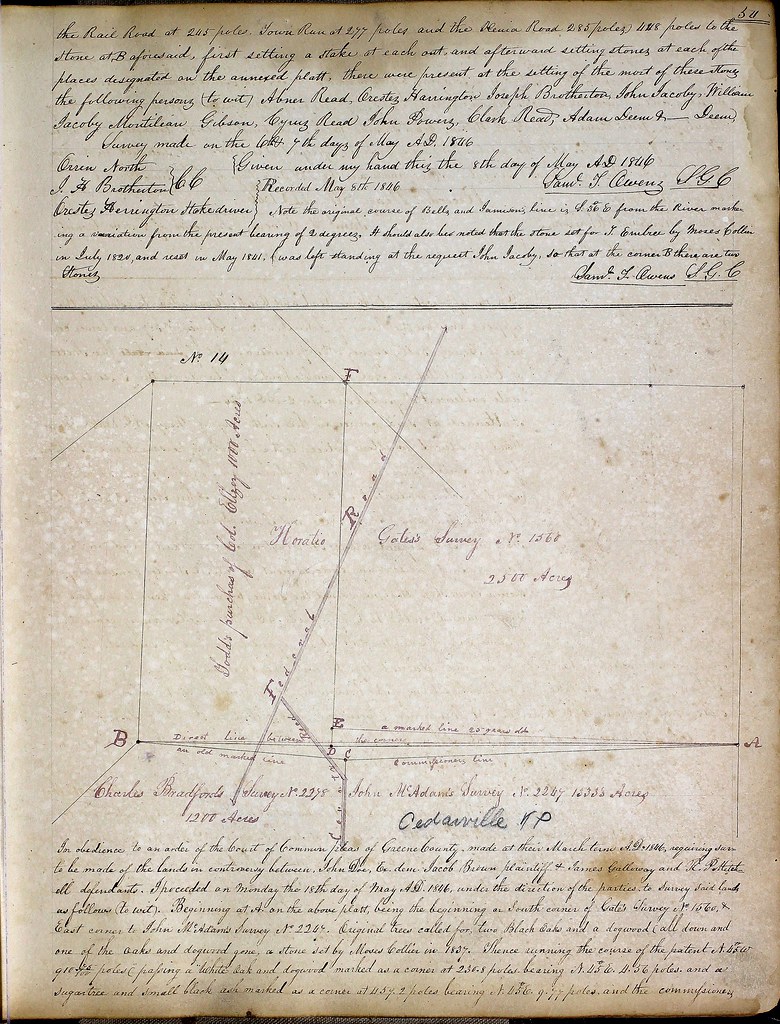 54
the Rail Road at 245 poles. Town Run at 277 poles and the Xenia Road 285 poles) 448 poles to the
stone at B aforesaid, first setting a stake at each out, and afterward setting stones at each of the
places designated on the annexed platt, there were present at the setting of the most of these stones
the following persons (to wit) Abner Read, Orestes Harrington Joseph Brotherton, John Jacoby, William
Jacoby Montilean Gibson, Cyrus Read John Powers, Clark Read, Adam Deem & — Deem,
Survey made on the 6th & 7th days of May A.D. 1846
Orrin North
J. H Brotherton } C C
Orestes Herrington Stakedriver
Given under my hand this the 8th day of May A.D 1846
Recorded May 8th 1846
Saml. T. Owens S G C
Note the original course of Bells and Jamisons line is S. 56 E from the River mark-
ing a variation from the present bearing of 2 degrees. It should also be noted that the stone set for T. Embree by Moses Collier
in July 1820, and reset in May 1841, (was left standing at the request John Jacoby, so that at the corner B there are two
Stones
Saml. T. Owens S. G. C
No 14
F
Todd's purchas of Col. Elzey 1000 Acres
Federal Road
Horatio Gates's Survey No. 1560
2500 Acres
E
a marked line 25 years old
B
Direct line between the corners
A
an old marked line
D
C
Commissioners line
Charles Bradfords Survey No. 2278
1200 Acres
John McAdams Survey No. 2247 1533⅓ Acres
Cedarville TP
In obedience to an order of the Court of Common pleas of Greene County, made at their March term A.D. 1846, requiring sur-
to be made of the lands in controversy between, John Doe, Ex. dem Jacob Brown plaintiff & James Galloway and R. P. Mitch
ell defendants. I proceeded on Monday the 18th day of May A.D. 1846, under the direction of the parties, to Survey said lands
as follows (to wit). Beginning at A. on the above platt, being the beginning or South corner of Gate's Survey No. 1560, &
East corner to John McAdams Survey No. 2247. Original trees called for, two Black Oaks and a dogwood (all down and
one of the Oaks and dogwood gone, a stone set by Moses Collier in 1837. Thence running the course of the patent N. 45 W
910 poles (passing a White Oak and dogwood marked as a corner at 236.8 poles bearing N. 45 E. 4.56 poles. and a
sugartree and small black ash marked as a corner at 457.2 poles bearing N. 45 E. 9.77 poles. and the commissioners